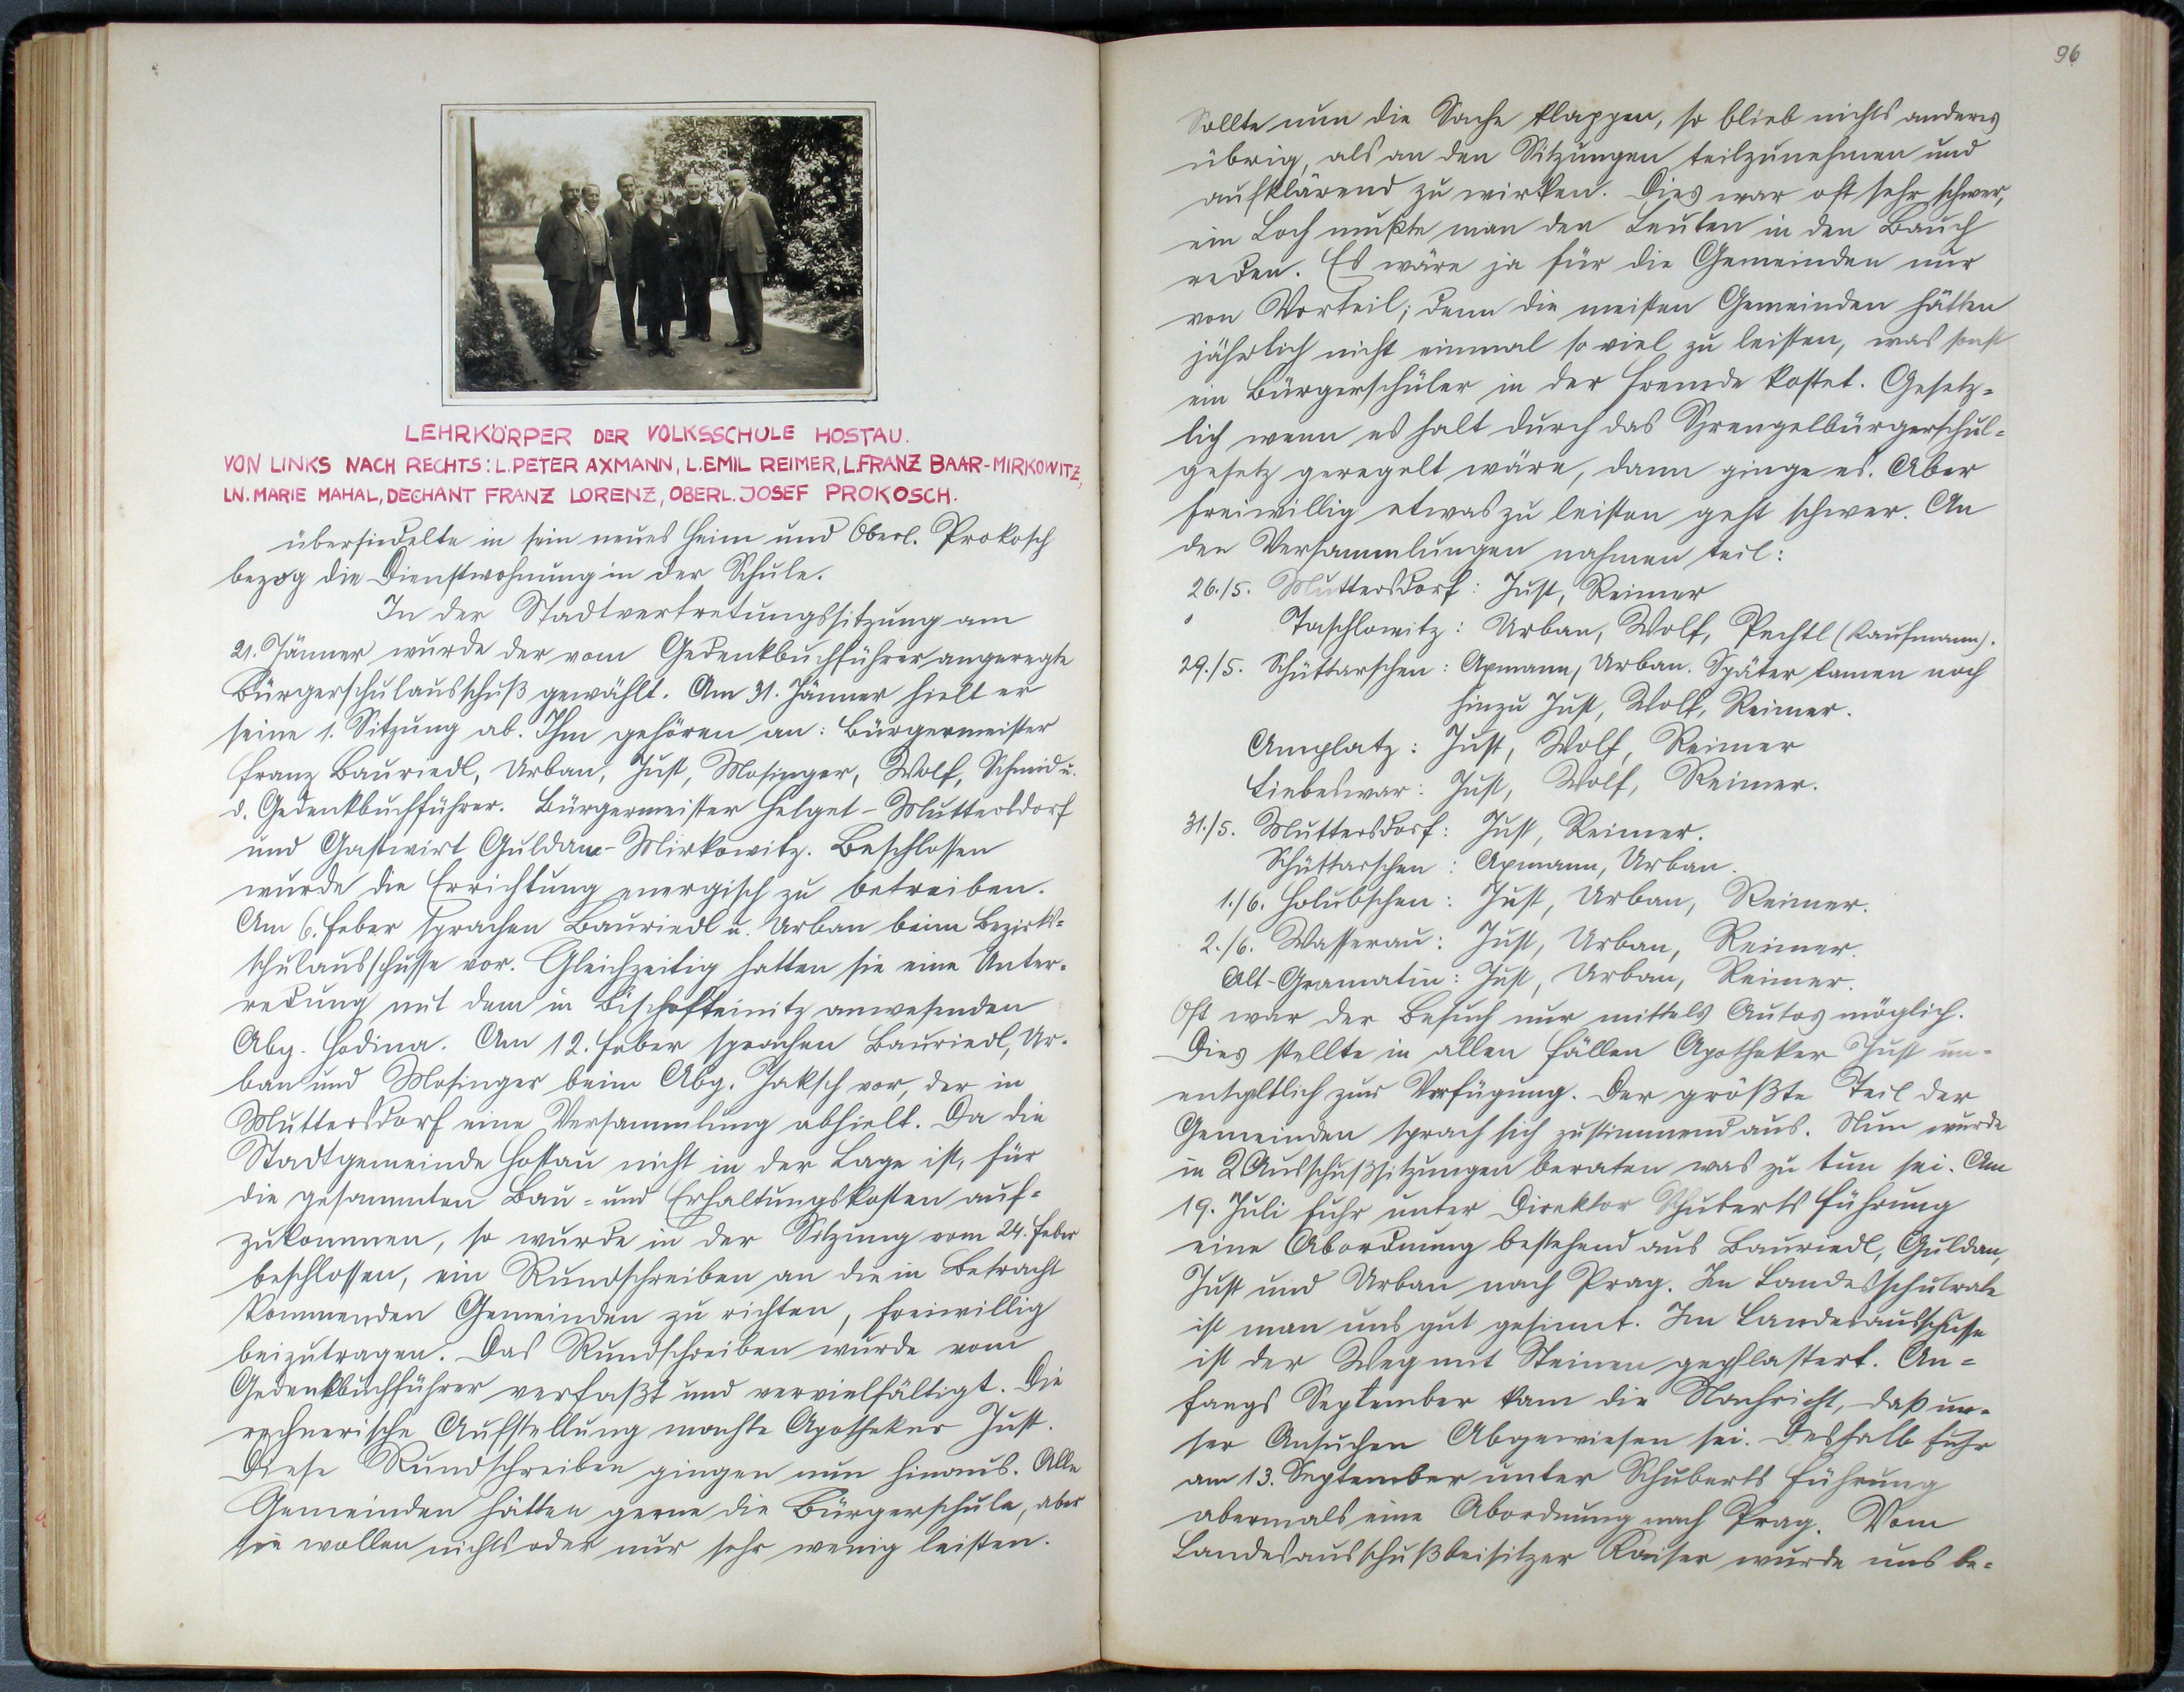 LEHRKÖRPER DER VOLKSSCHULE HOSTAU.
VON LINKS NACH RECHTS: L. PETER AXMANN, L. EMIL REIMER, L. FRANZ BAAR-MIRKOWITZ,
LN. MARIE MAHAL, DECHANT FRANZ LORENZ, OBERL. JOSEF PROKOSCH.
übersiedelte in sein neues Heim und Oberl. Prokosch
bezog die Dienstwohnung in der Schule.
In der Stadtvertretungssitzung am
21. Jänner wurde der vom Gedenkbuchführer angeregte
Bürgerschulausschuß gewählt. Am 31. Jänner hielt er
seine 1. Sitzung ab. Ihm gehören an: Bürgermeister
Franz Bauriedl, Urban, Just, Mosinger, Wolf, Schmid u.
d. Gedenkbuchführer. Bürgermeister Helget-Muttersdorf
und Gastwirt Guldan-Mirkowitz. Beschlossen
wurde die Errichtung energisch zu betreiben.
Am 6. Feber sprachen Bauriedl u. Urban beim Bezirks-
schulausschusse vor. Gleichzeitig hatten sie eine Unter-
redung mit dem in Bischofteinitz anwesenden
Abg. Hodina. Am 12. Feber sprachen Bauriedl, Ur-
ban und Mosinger beim Abg. Jaksch vor, der in
Muttersdorf eine Versammlung abhielt. Da die
Stadtgemeinde Hostau nicht in der Lage ist, für
die gesammten Bau- und Erhaltungskosten auf-
zukommen, so wurde in der Sitzung vom 24. Feber
beschlossen, ein Rundschreiben an die in Betracht
kommenden Gemeinden zu richten, freiwillig
beizutragen. Das Rundschreiben wurde vom
Gedenkbuchführer verfaßt und vervielfältigt. Die
rechnerische Aufstellung machte Apotheker Just.
Diese Rundschreiben gingen nun hinaus. Alle
Gemeinden hätten gerne die Bürgerschule, aber
sie wollen nichts oder nur sehr wenig leisten.
96
Sollte nun die Sache klappen, so blieb nichts anderes
übrig, als an den Sitzungen teilzunehmen und
aufklärend zu wirken. Dies war oft sehr schwer,
ein Loch mußte man den Leuten in den Bauch
reden. Es wäre ja für die Gemeinden nur
von Vorteil; denn die meisten Gemeinden hätten
jährlich nicht einmal so viel zu leisten, was sonst
ein Bürgerschüler in der Fremde kostet. Gesetz-
lich wenn es halt durch das Sprengelbürgerschul-
gesetz geregelt wäre, dann ginge es. Aber
freiwillig etwas zu leisten geht schwer. An
den Versammlungen nahmen teil:
26./5. Muttersdorf: Just, Reimer
Taschlowitz: Urban, Wolf, Pechtl (Kaufmann).
29./5. Schüttarschen: Axmann, Urban. Später kamen noch
hinzu Just, Wolf, Reimer.
Amplatz: Just, Wolf, Reimer
Liebeswar: Just, Wolf, Reimer.
31./5. Muttersdorf: Just, Reimer.
Schüttarschen: Axmann, Urban.
1./6. Holubschen: Just, Urban, Reimer.
2./6. Wasserau: Just, Urban, Reimer.
Alt-Gramatin: Just, Urban, Reimer.
Oft war der Besuch nur mittels Autos möglich.
Dies stellte in allen Fällen Apotheker Just un-
entgeltlich zur Verfügung. Der größte Teil der
Gemeinden sprach sich zustimmend aus. Nun wurde
in 2 Ausschußsitzungen beraten was zu tun sei. Am
19. Juli fuhr unter Direktor Schuberts Führung
eine Abordnung bestehend aus Bauriedl, Guldan,
Just und Urban nach Prag. Im Landesschulrate
ist man uns gut gesinnt. Im Landesausschusse
ist der Weg mit Steinen gepflastert. An-
fangs September kam die Nachricht, daß un-
ser Ansuchen Abgewiesen sei. Deshalb fuhr
am 13. September unter Schuberts Führung
abermals eine Abordnung nach Prag. Vom
Landesausschußbeisitzer Kaiser wurde uns be-